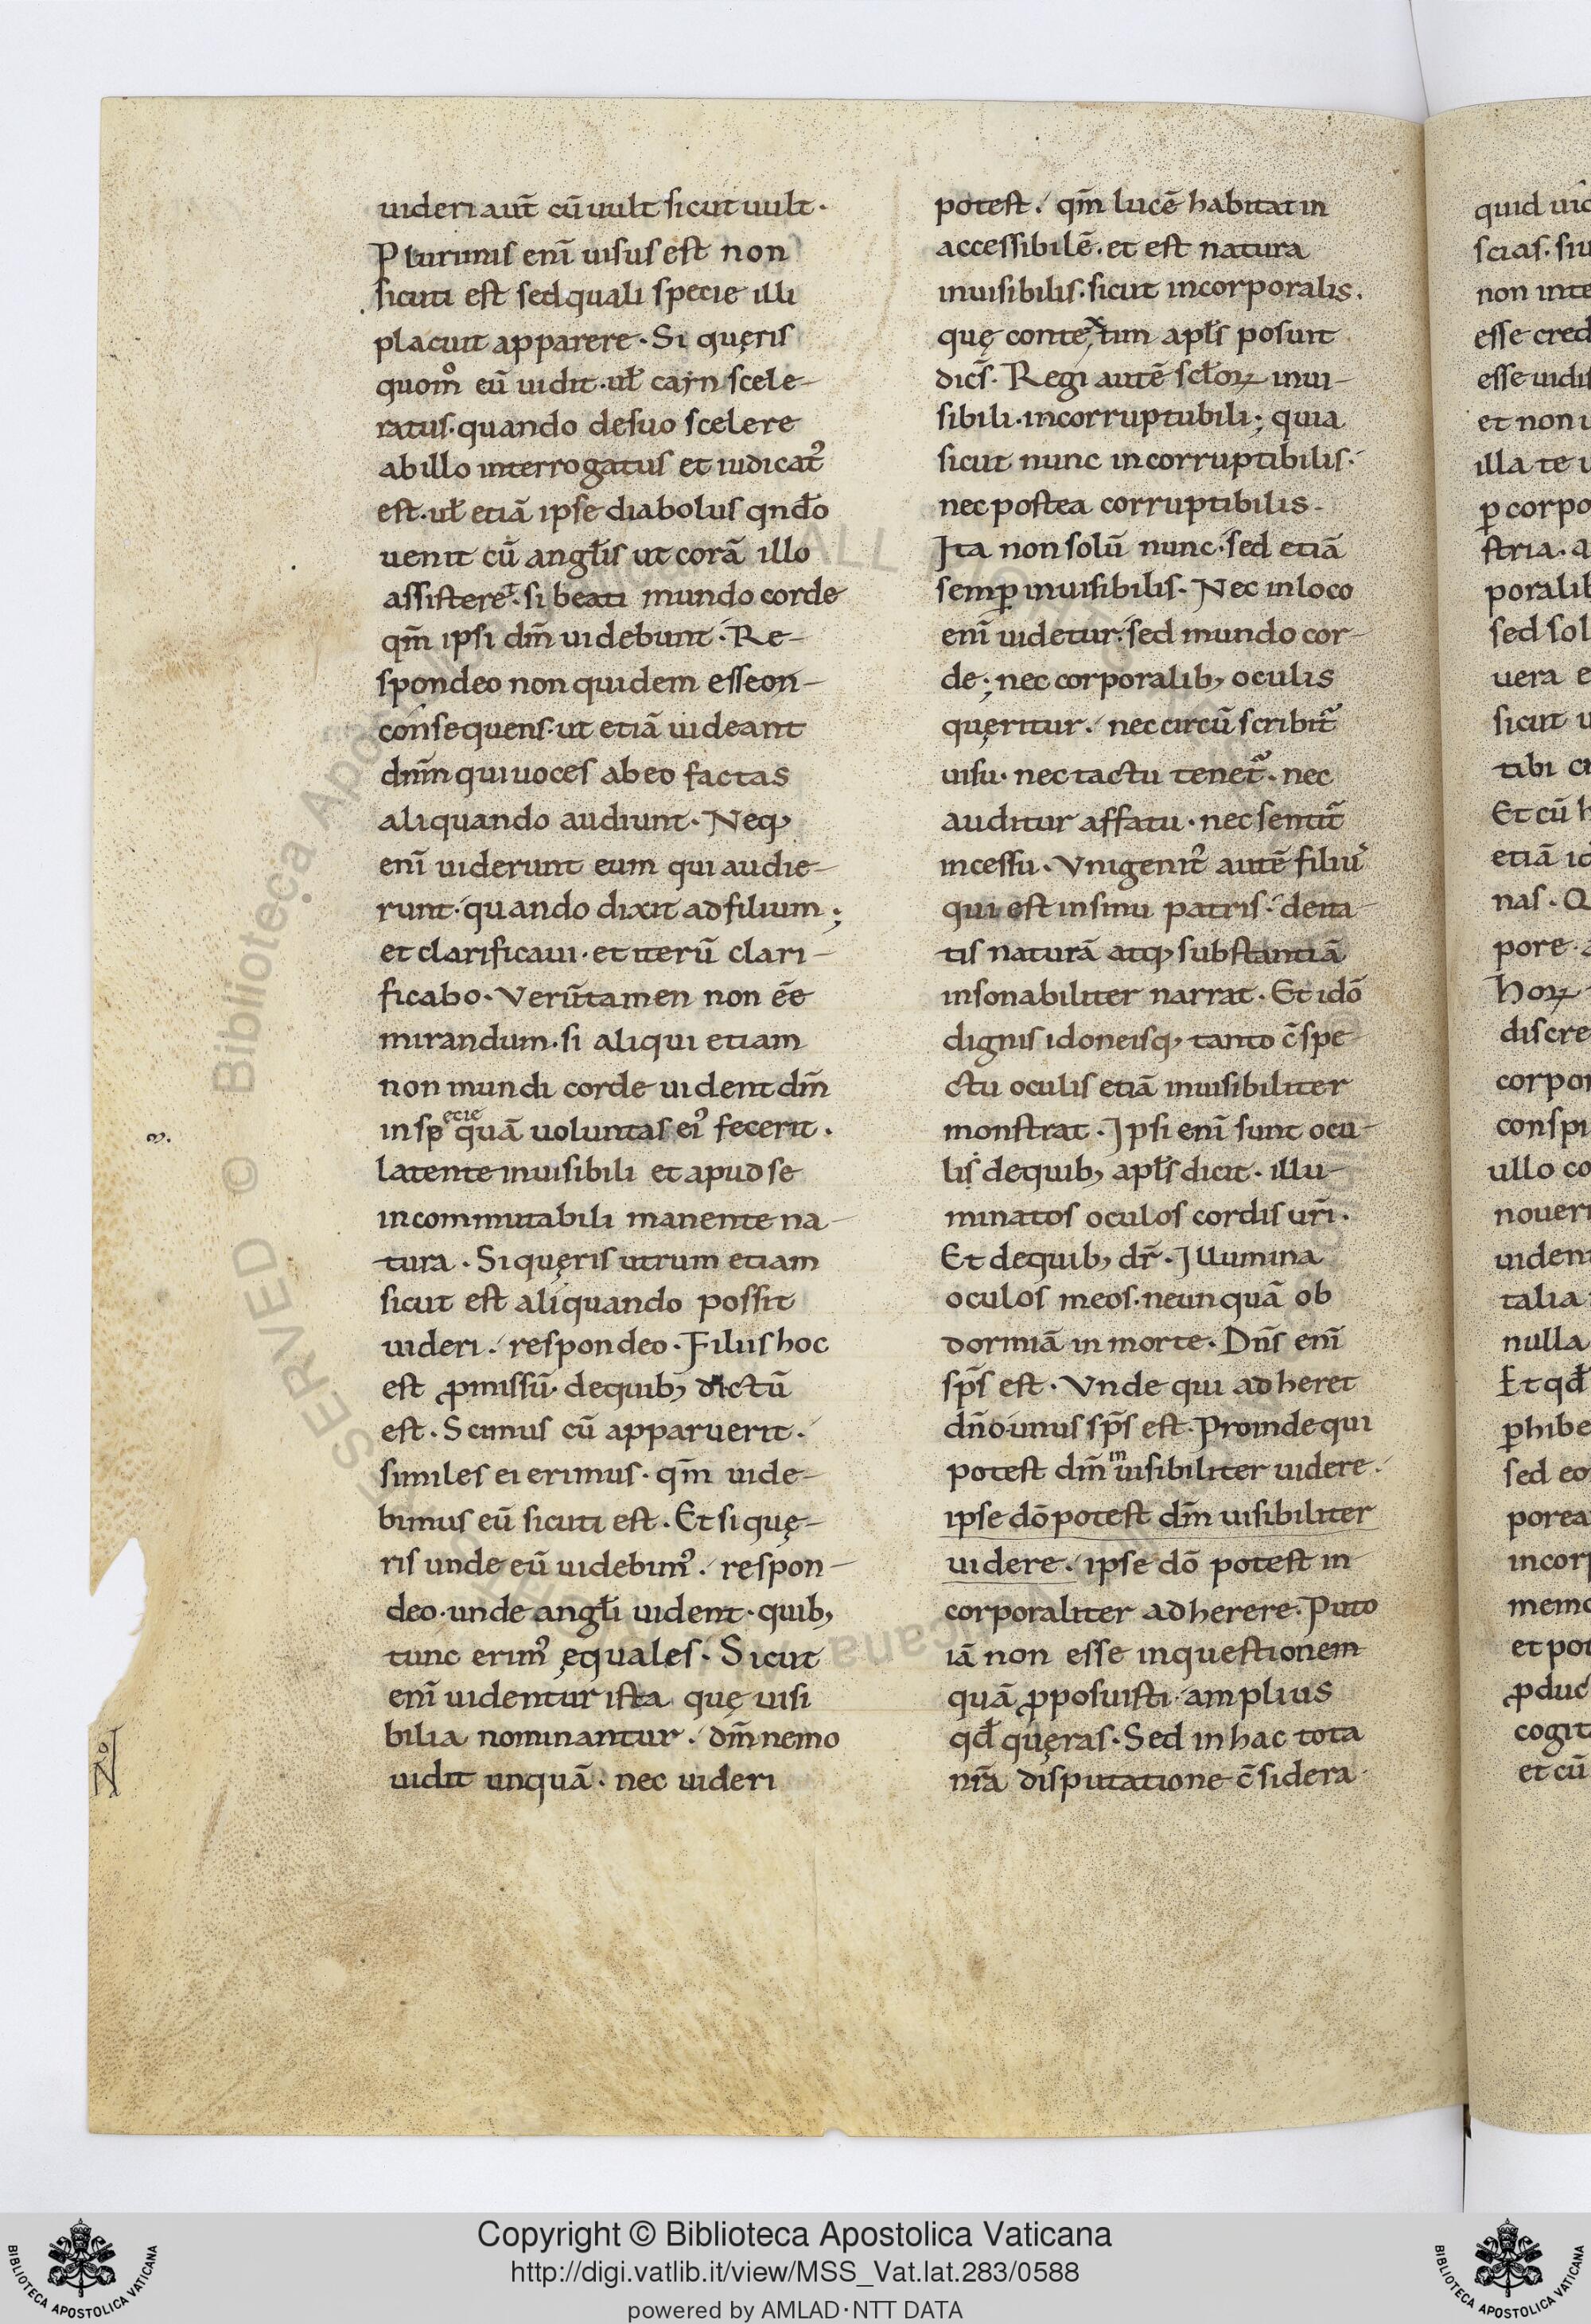 uideri aut̄ cū uult sicut uult ·
Plurimis enī uisus est non
sicuti est sed quali specie illi
placuit apparere · Si quęris
quom̊ eū uidit · uł cayn scele-
ratus · quando de suo scelere
ab illo interrogatus et iudicat᾽
est · uł etiā ipse diabolus qnđo
uenit cū angłis ut corā illo
assistere · si beati mundo corde
qm̄ ipsi dm̄ uidebunt · Re-
spondeo non quidem esse on-
consequens · ut etiā uideant
dnm̄ qui uoces ab eo factas
aliquando audiunt · Neq,
enī uiderunt eum qui audie-
runt · quando dixit ad filium ;
et clarificaui · et iterū clari-
ficabo · Verūtamen non ēe
mirandum · si aliqui etiam
non mundi corde uident dm̄
ecie
in sp quā uoluntas ei᾽ fecerit ·
latente inuisibili et apud se
incommutabili manente na-
tura · Si quęris utrum etiam
sicut est aliquando possit
uideri · respondeo · Filiis hoc
est ꝓmissū · de quib, dictū
est · Scimus cū apparuerit ·
similes ei erimus · qm̄ uide-
bimus eū sicuti est · Et si quę-
ris unde eū uidebim᾽ · respon-
deo · unde angłi uident · quib,
tunc erim᾽ ęquales · Sicut
enī uidentur ista quę uisi
bilia nominantur · dm̄ nemo
uidit unquā · nec uideri
potest · qm̄ lucē habitat in
accessibilē · et est natura
inuisibilis · sicut incorporalis ·
quę contextim apłs posuit
dicš · Regi autē scłoꝝ inui-
sibili · incorruptubili ; quia
sicut nunc incorruptibilis ·
nec postea corruptibilis ·
Ita non solū nunc · sed etiā
semꝑ inuisibilis · Nec in loco
enī uidetur · sed mundo cor-
de ; nec corporalib, oculis
quęritur · nec circū scribit᷑
uisu · nec tactu tenet᷑ · nec
auditur affatu · nec sentit᷑
incessu · Vnigenit᾽ autē filiu᾽
qui est in sinu patris · deita-
tis naturā atq, substantiā
insonabiliter narrat · Et idō
dignis idoneisq, tanto c̄spe-
ctu oculis etiā inuisibiliter
monstrat · Ipsi enī sunt ocu-
lis de quib, apłs dicit · illu-
minatos oculos cordis ur̄i ·
Et de quib, dr̄ · Illumina
oculos meos · ne unquā ob
dormiā in morte · Dn̄s enī
sp̄s est · Vnde qui adheret
dn̄o · unus sp̄s est · Proinde qui
in
potest dm̄ uisibiliter uidere ·
ipse dō potest dm̄ uisibiliter
uidere · ipse dō potest in
corporaliter adherere · Puto
iā non esse in questionem
quā ꝓposuisti · amplius
qđ quęras · Sed in hac tota
nr̄a disputatione c̄sidera
quid
scias · siu
non inte
esse cred
esse uidis
et non
illa te
ꝑ corpo
stria · a
poralib
sed sol
uera e
sicut
tibi
Et cū h
etiā
nas · Q
pore · a
hoꝝ
discre
corpor
conspi
ullo co
nouer
uiden
talia
nulla
Et qđ
ꝑhibe
sed eo
porea
incorp
memo
et pot
ꝓduc
cogit
et cū
SERVED © Biblioteca Apostolica Vaticana
Copyright © Biblioteca Apostolica Vaticana
http://digi.vatlib.it/view/MSS_Vat.lat.283/0588
powered by AMLAD·NTT DATA
BIBLIOTECA APOSTOLICA VATICANA
BIBLIOTECA APOSTOLICA VATICANA